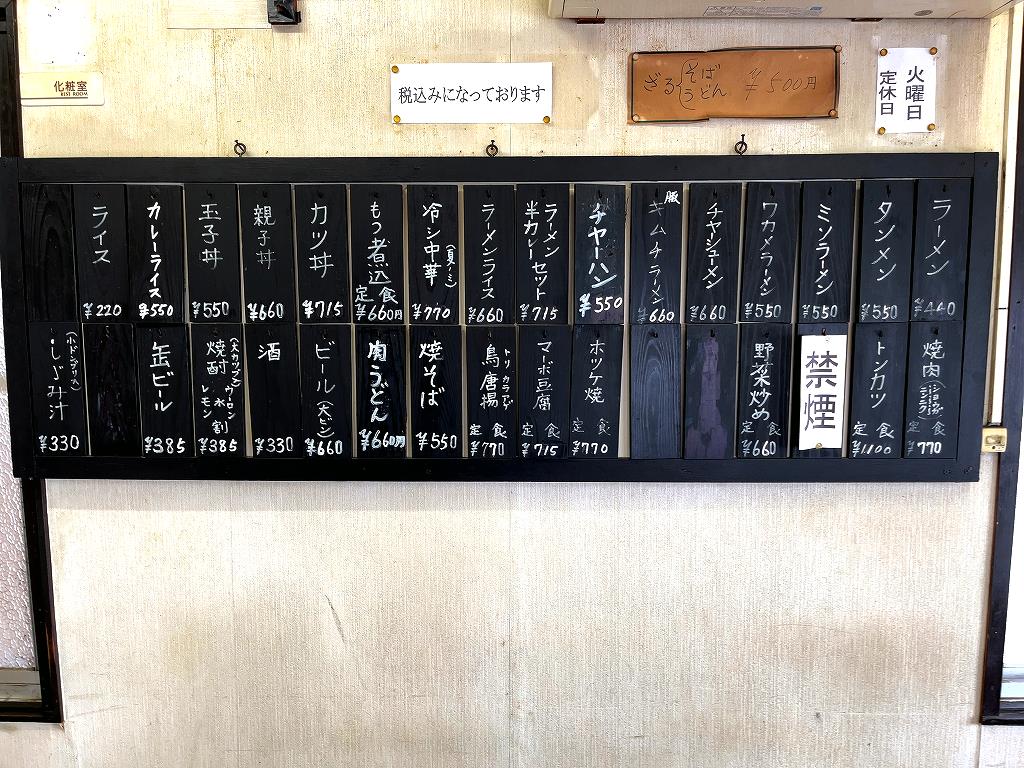 化粧室
REST ROOM
税込みになっております
ざる そば うどん ¥500円
火曜日
定休日
ラーメン ¥440
タンメン ¥550
ミソラーメン ¥550
ワカメラーメン ¥550
チャシューメン ¥660
豚キムチラーメン ¥660
チャーハン ¥550
ラーメン半カレーセット ¥715
ラーメンライス ¥660
冷シ中華 (夏ノミ) ¥770
もつ煮込定食 ¥660円
カツ丼 ¥715
親子丼 ¥660
玉子丼 ¥550
カレーライス ¥550
ライス ¥220
焼肉 定食 ¥770
トンカツ 定食 ¥1,100
禁煙
野菜炒め 定食 ¥660
ホッケ焼 定食 ¥770
マーボ豆腐 定食 ¥715
鳥唐揚 トリカラアゲ 定食 ¥770
焼そば ¥550
肉うどん ¥660円
ビール (大ビン) ¥660
酒 ¥330
焼酎 ウーロン 水 レモン 割 ¥385
缶ビール ¥385
しゞみ汁 ¥330